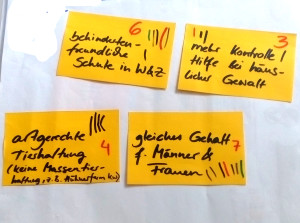 6
behinderten-
freundliche
Schule in W&Z
3
mehr Kontrolle /
Hilfe bei häus-
licher Gewalt
artgerechte
Tierhaltung
4
(keine Massentier-
haltung, z.B. Hühnerfarm
gleicher Gehalt
7
f. Männer &
Frauen